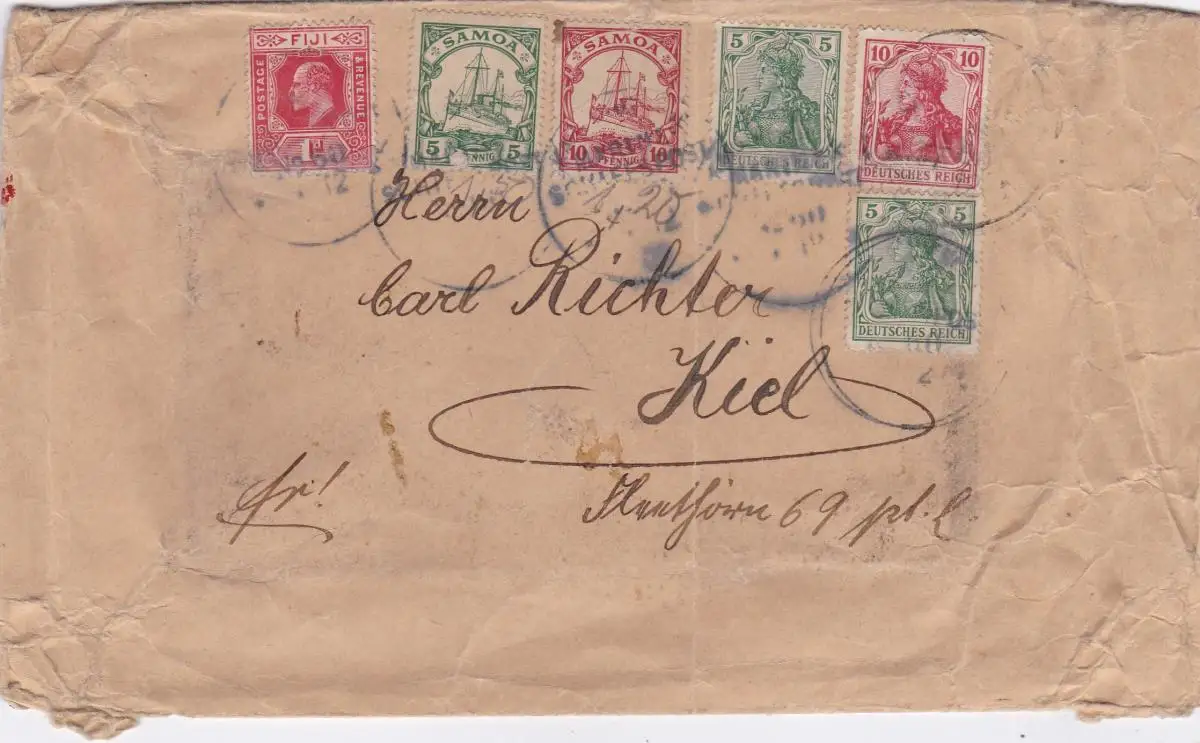 FIJI
POSTAGE & REVENUE
1D
SAMOA
5 PFENNIG 5
SAMOA
10 PFENNIG 10
5 5
DEUTSCHES REICH
10 10
DEUTSCHES REICH
5 5
DEUTSCHES REICH
Herrn
Carl Richter
Kiel
fr!
69 pt. l.